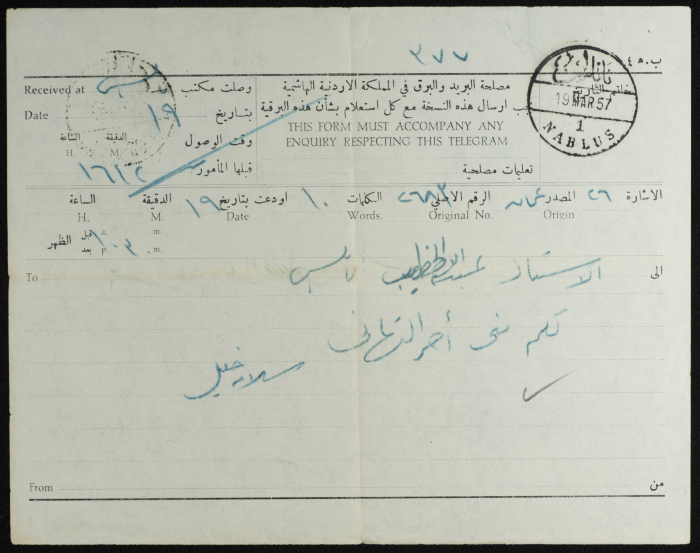 ٣٧٧
ب. ه ٤
مصلحة البريد والبرق في المملكة الاردنية الهاشمية
يجب ارسال هذه النسخة مع كل استعلام بشأن هذه البرقية
THIS FORM MUST ACCOMPANY ANY
ENQUIRY RESPECTING THIS TELEGRAM
تعليمات مصلحية
Received at وصلت مكتب نابلس
Date بتاريخ ١٩
وقت الوصول الدقيقة الساعة
H. M.
قبلها المأمور
خاتم التاريخ
نابلس
19 MAR 57
1
NABLUS
الاشارة ٢٦ المصدر عمان الرقم الاصلي الكلمات ١٠ اودعت بتاريخ ١٩ الدقيقة الساعة
Origin Original No. Words. Date M. H.
قبل a. m.
بعد p. m.
الظهر
To الى الاستاذ عبد الخطيب نابلس
لكم مني أحر التهاني
خليل
From من